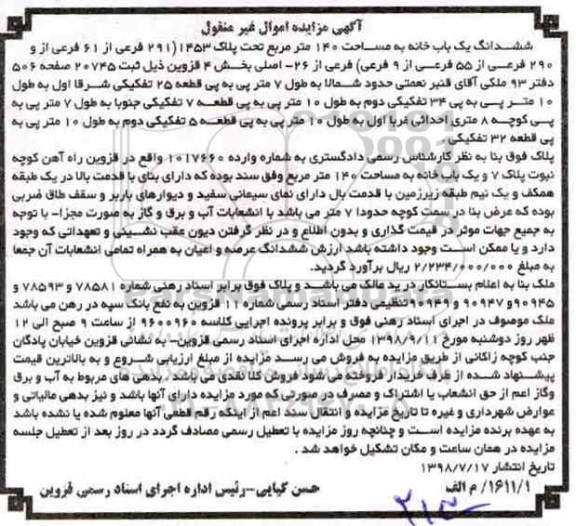 آگهی مزایده اموال غیر منقول
ششدانگ یک باب خانه به مساحت ۱۴۰ متر مربع تحت پلاک ۱۴۵۳(۲۹۱ فرعی از ۶۱ فرعی از و
۲۹۰ فرعی از ۵۵ فرعی از ۹ فرعی) فرعی از ۲۶- اصلی بخش ۴ قزوین ذیل ثبت ۲۰۷۴۵ صفحه ۵۰۶
دفتر ۹۳ ملکی آقای قنبر نعمتی حدود شمالا به طول ۷ متر پی به پی قطعه ۲۵ تفکیکی شرقا اول به طول
۱۰ متر پی به پی ۳۴ تفکیکی دوم به طول ۱۰ متر پی به پی قطعه ۷ تفکیکی جنوبا به طول ۷ متر پی به
پی کوچه ۸ متری احداثی غربا اول به طول ۱۰ متر پی به پی قطعه ۵ تفکیکی دوم به طول ۱۰ متر پی به
پی قطعه ۳۲ تفکیکی
پلاک فوق بنا به نظر کارشناس رسمی دادگستری به شماره وارده ۱۰۱۷۶۶۰ واقع در قزوین راه آهن کوچه
نبوت پلاک ۷ و یک باب خانه به مساحت ۱۴۰ متر مربع وفق سند بوده که دارای بنای با قدمت بالا در یک طبقه
همکف و یک نیم طبقه زیرزمین با قدمت بال دارای نمای سیمانی سفید و دیوارهای باربر و سقف طاق ضربی
بوده که عرض بنا در سمت کوچه حدودا ۷ متر می باشد با انشعابات آب و برق و گاز به صورت مجزا- با توجه
به جمیع جهات موثر در قیمت گذاری و بدون اطلاع و در نظر گرفتن دیون عقب نشینی و تعهداتی که وجود
دارد و یا ممکن است وجود داشته باشد ارزش ششدانگ عرصه و اعیان به همراه تمامی انشعابات آن جمعا
به مبلغ ۲/۲۳۴/۰۰۰/۰۰۰ ریال برآورد گردید.
ملک بنا به اعلام بستانکار در ید مالک می باشد و پلاک فوق برابر اسناد رهنی شماره ۷۸۵۸۱ و ۷۸۵۹۳ و
۹۰۹۴۵و ۹۰۹۴۷ و ۹۰۹۴۹ تنظیمی دفتر اسناد رسمی شماره ۱۱ قزوین به نفع بانک سپه در رهن می باشد
ملک موصوف در اجرای اسناد رهنی فوق و برابر پرونده اجرایی کلاسه ۹۶۰۰۹۶۰ از ساعت ۹ صبح الی ۱۲
ظهر روز دوشنبه مورخ ۱۳۹۸/۹/۱۱ محل اداره اجرای اسناد رسمی قزوین- به نشانی قزوین خیابان پادگان
جنب کوچه زاکانی از طریق مزایده به فروش می رسد مزایده از مبلغ ارزیابی شروع و به بالاترین قیمت
پیشنهاد شده از طرف خریدار فروخته می شود فروش کلا نقدی می باشد. بدهی های مربوط به آب و برق
وگاز اعم از حق انشعاب یا اشتراک و مصرف در صورتی که مورد مزایده دارای آنها باشد و نیز بدهی مالیاتی و
عوارض شهرداری و غیره تا تاریخ مزایده و انتقال سند اعم از اینکه رقم قطعی آنها معلوم شده یا نشده باشد
به عهده برنده مزایده است و چنانچه روز مزایده با تعطیل رسمی مصادف گردد در روز بعد از تعطیل جلسه
مزایده در همان ساعت و مکان تشکیل خواهد شد .
تاریخ انتشار ۱۳۹۸/۷/۱۷
۱۶۱۱/۱/ م الف حسن کیایی–رئیس اداره اجرای اسناد رسمی قزوین